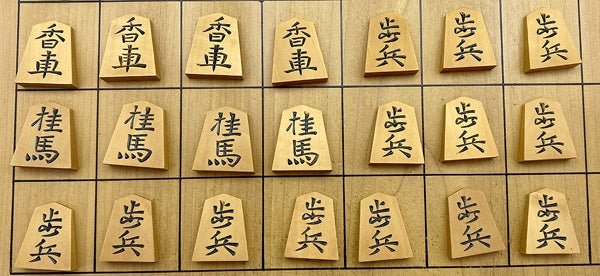 香車 香車 香車 香車 歩兵 歩兵 歩兵
桂馬 桂馬 桂馬 桂馬 歩兵 歩兵 歩兵
歩兵 歩兵 歩兵 歩兵 歩兵 歩兵 歩兵